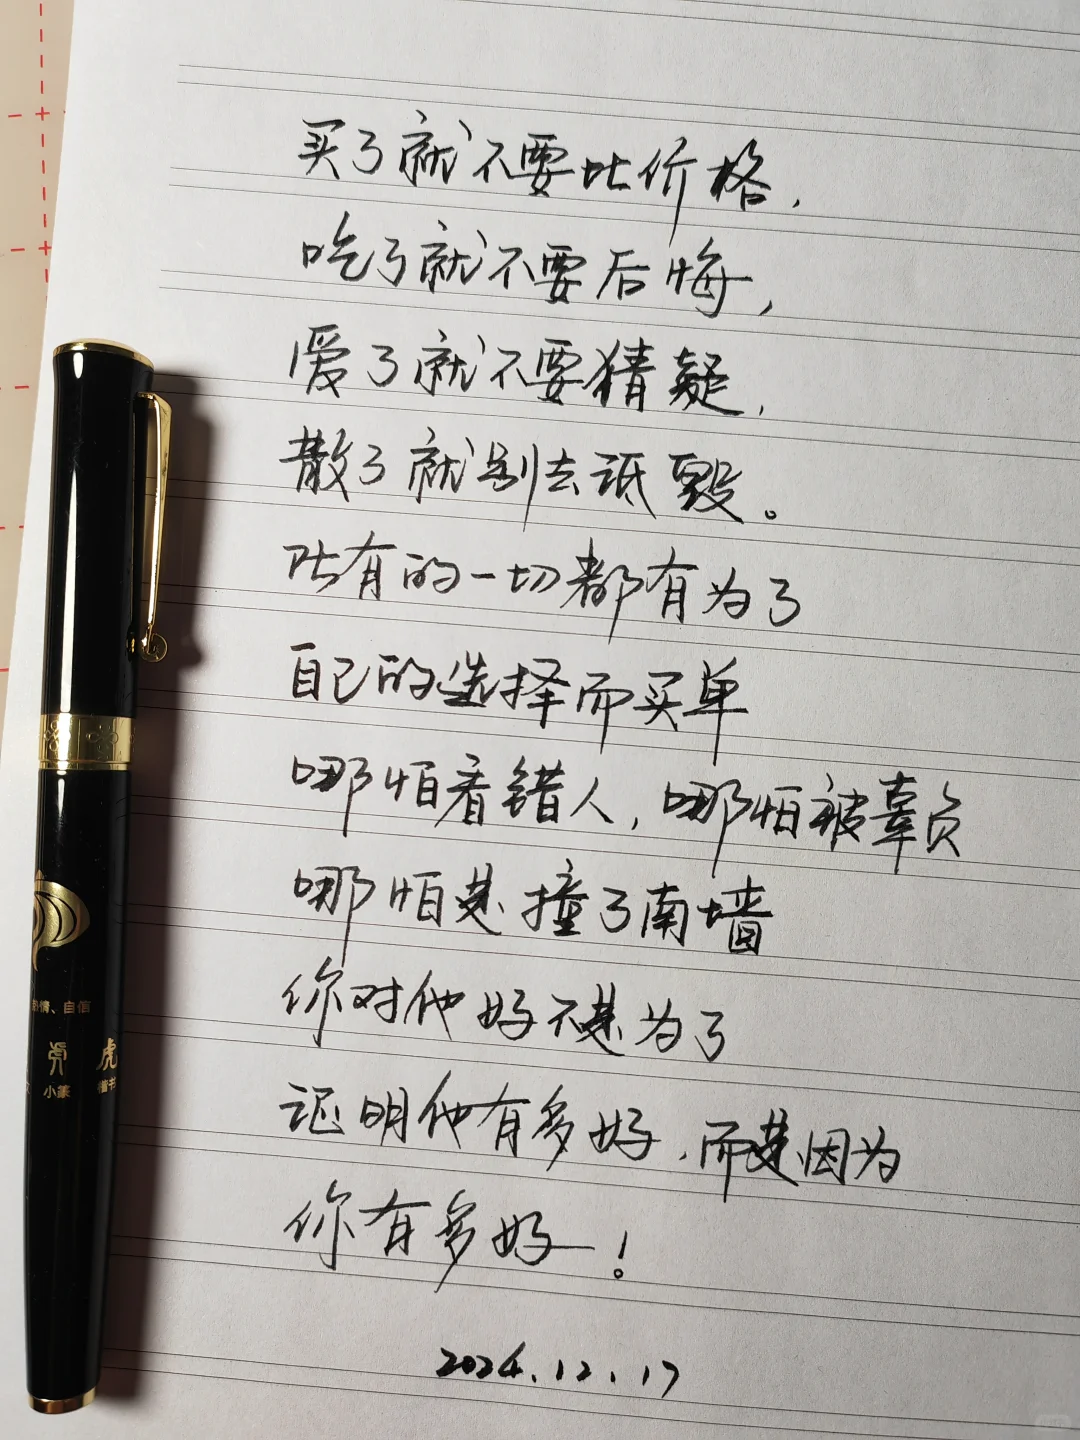 买了就不要比价格，
吃了就不要后悔，
爱了就不要猜疑，
散了就别去诋毁。
所有的一切都有为了
自己的选择而买单
哪怕看错人，哪怕被辜负
哪怕是撞了南墙
你对他好不是为了
证明他有多好，而是因为
你有多好！
2024.12.17
热情、自信
小篆 楷书
虎